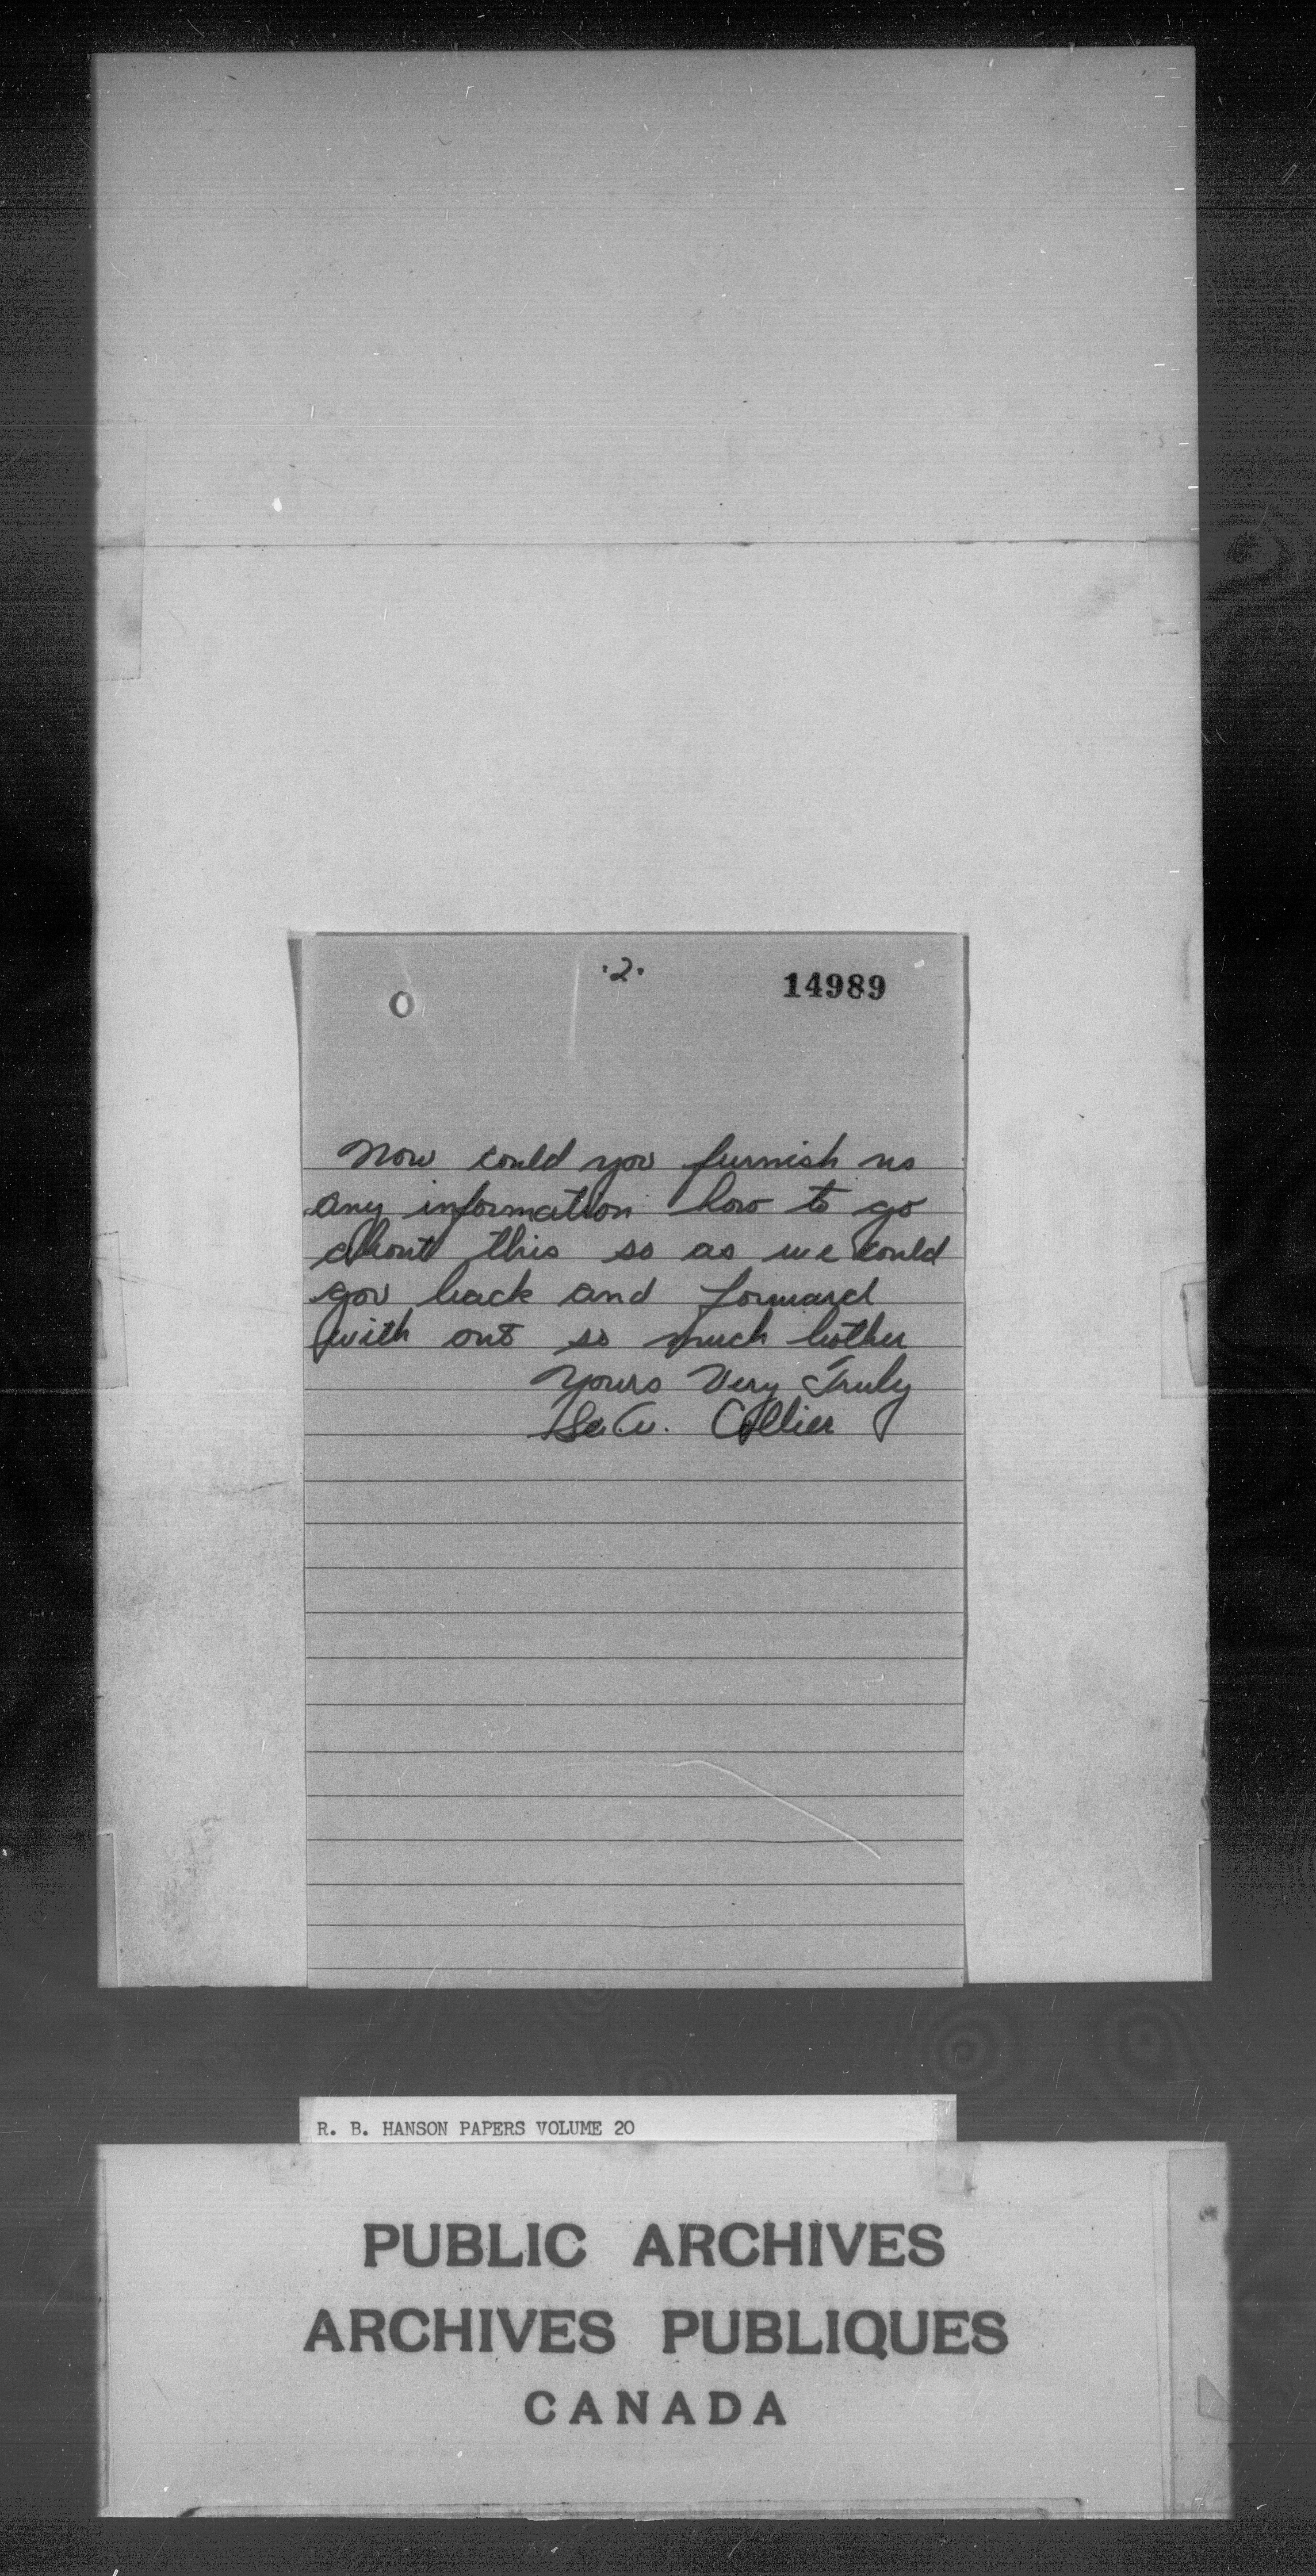 .2.
14989
Now could you furnish us
any information how to go
about this so as we could
gov back and forward
with out so much bother
Yours Very Truly
Collier
R. B. HANSON PAPERS VOLUME 20
PUBLIC ARCHIVES
ARCHIVES PUBLIQUES
CANADA